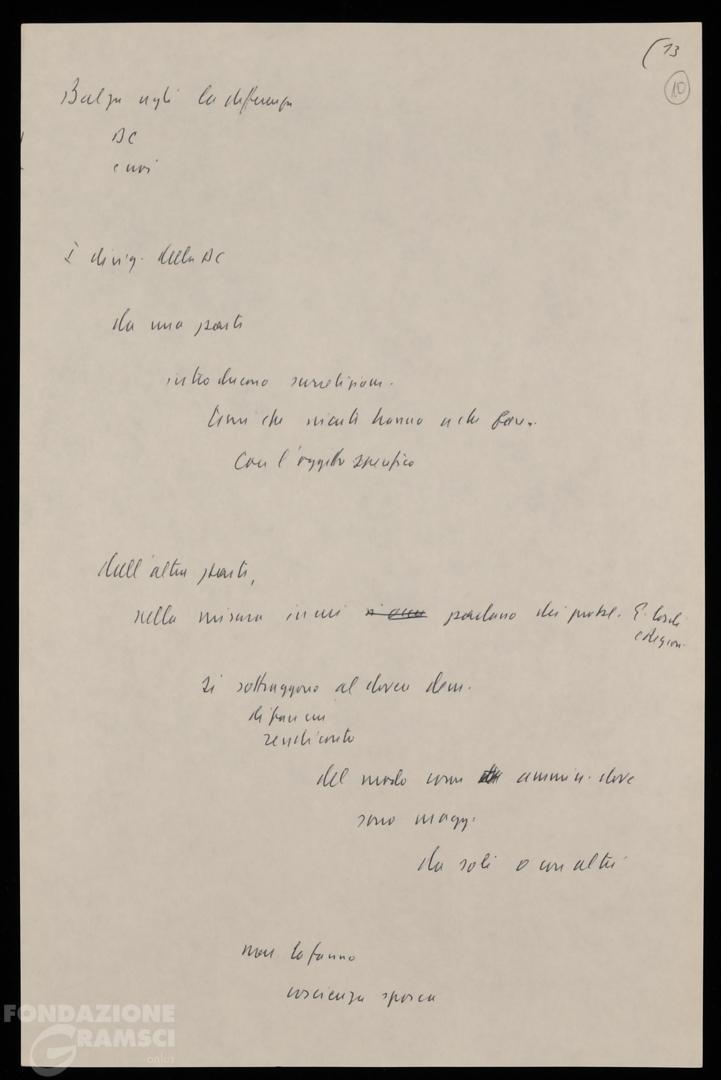 (13
10
Balza agli la differenza
DC
e noi
I dirig. della DC
da una parte
introducono surrettiziam.
temi che niente hanno a che fare
con l'oggetto specifico
dall'altra parte,
nella misura in cui parlano dei probl. E. locali
e region.
si sottraggono al dovere dem.
di fare un
rendiconto
del modo come ammin. dove
sono magg.
da soli o con altri
non lo fanno
coscienza sporca
FONDAZIONE
GRAMSCI
onlus